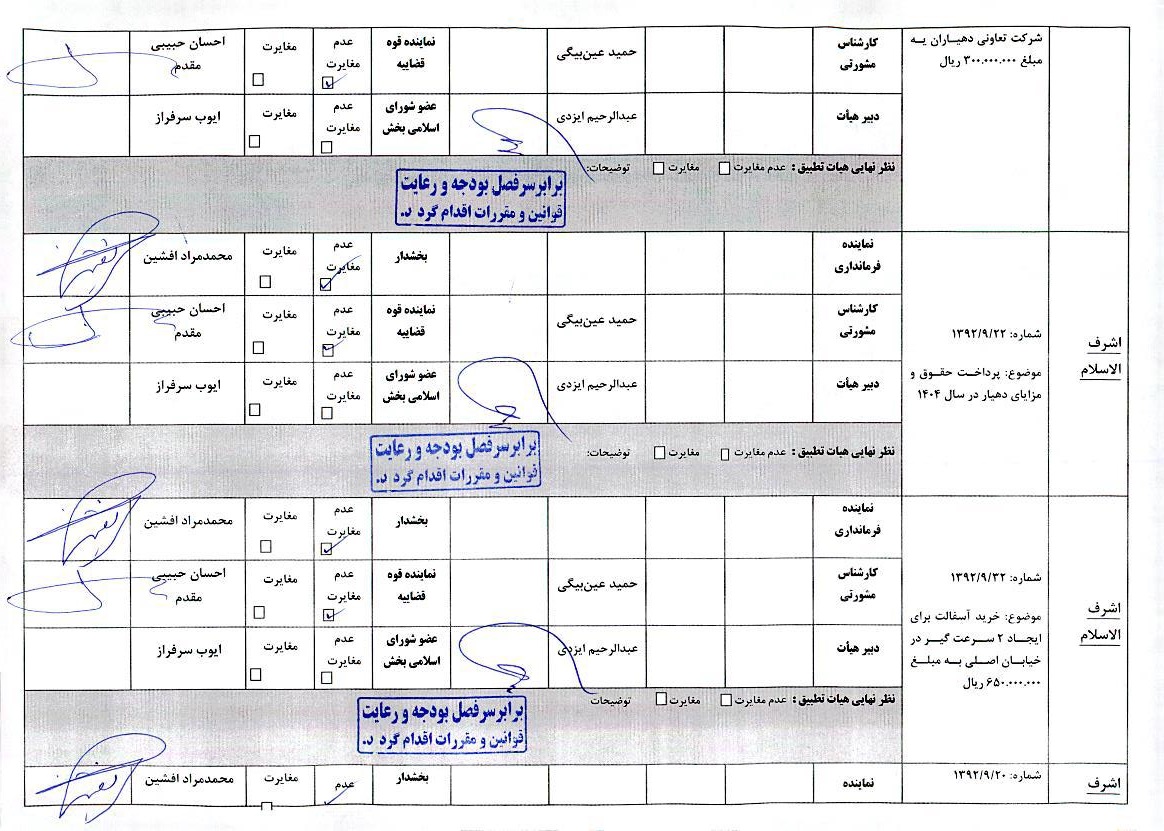 شرکت تعاونی دهیاران به
مبلغ ۳۰۰.۰۰۰.۰۰۰ ریال
کارشناس
مشورتی
حمید عین‌بیگی
نماینده قوه
قضاییه
عدم
مغایرت
مغایرت
احسان حبیبی
مقدم
دبیر هیأت
عبدالرحیم ایزدی
عضو شورای
اسلامی بخش
عدم
مغایرت
مغایرت
ایوب سرفراز
نظر نهایی هیات تطبیق: عدم مغایرت □ مغایرت □ توضیحات:
برابر سرفصل بودجه و رعایت
قوانین و مقررات اقدام گردد.
اشرف
الاسلام
شماره: ۱۳۹۲/۹/۲۲
موضوع: پرداخت حقوق و
مزایای دهیار در سال ۱۴۰۴
نماینده
فرمانداری
بخشدار
عدم
مغایرت
مغایرت
محمدمراد افشین
کارشناس
مشورتی
حمید عین‌بیگی
نماینده قوه
قضاییه
عدم
مغایرت
مغایرت
احسان حبیبی
مقدم
دبیر هیأت
عبدالرحیم ایزدی
عضو شورای
اسلامی بخش
عدم
مغایرت
مغایرت
ایوب سرفراز
نظر نهایی هیات تطبیق: عدم مغایرت □ مغایرت □ توضیحات:
برابر سرفصل بودجه و رعایت
قوانین و مقررات اقدام گردد.
اشرف
الاسلام
شماره: ۱۳۹۲/۹/۳۲
موضوع: خرید آسفالت برای
ایجاد ۲ سرعت گیر در
خیابان اصلی به مبلغ
۶۵۰.۰۰۰.۰۰۰ ریال
نماینده
فرمانداری
بخشدار
عدم
مغایرت
مغایرت
محمدمراد افشین
کارشناس
مشورتی
حمید عین‌بیگی
نماینده قوه
قضاییه
عدم
مغایرت
مغایرت
احسان حبیبی
مقدم
دبیر هیأت
عبدالرحیم ایزدی
عضو شورای
اسلامی بخش
عدم
مغایرت
مغایرت
ایوب سرفراز
نظر نهایی هیات تطبیق: عدم مغایرت □ مغایرت □ توضیحات
برابر سرفصل بودجه و رعایت
قوانین و مقررات اقدام گردد.
اشرف
شماره: ۱۳۹۲/۹/۲۰
نماینده
بخشدار
عدم
مغایرت
محمدمراد افشین